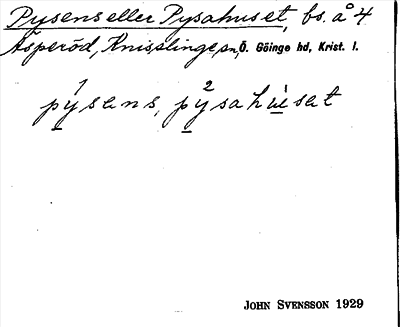 Pysens eller Pysahuset, bs. å 4
Äsperöd, Knisslinge sn, Ö. Göinge hd, Krist. l.
pysens, pysahuset
JOHN SVENSSON 1929